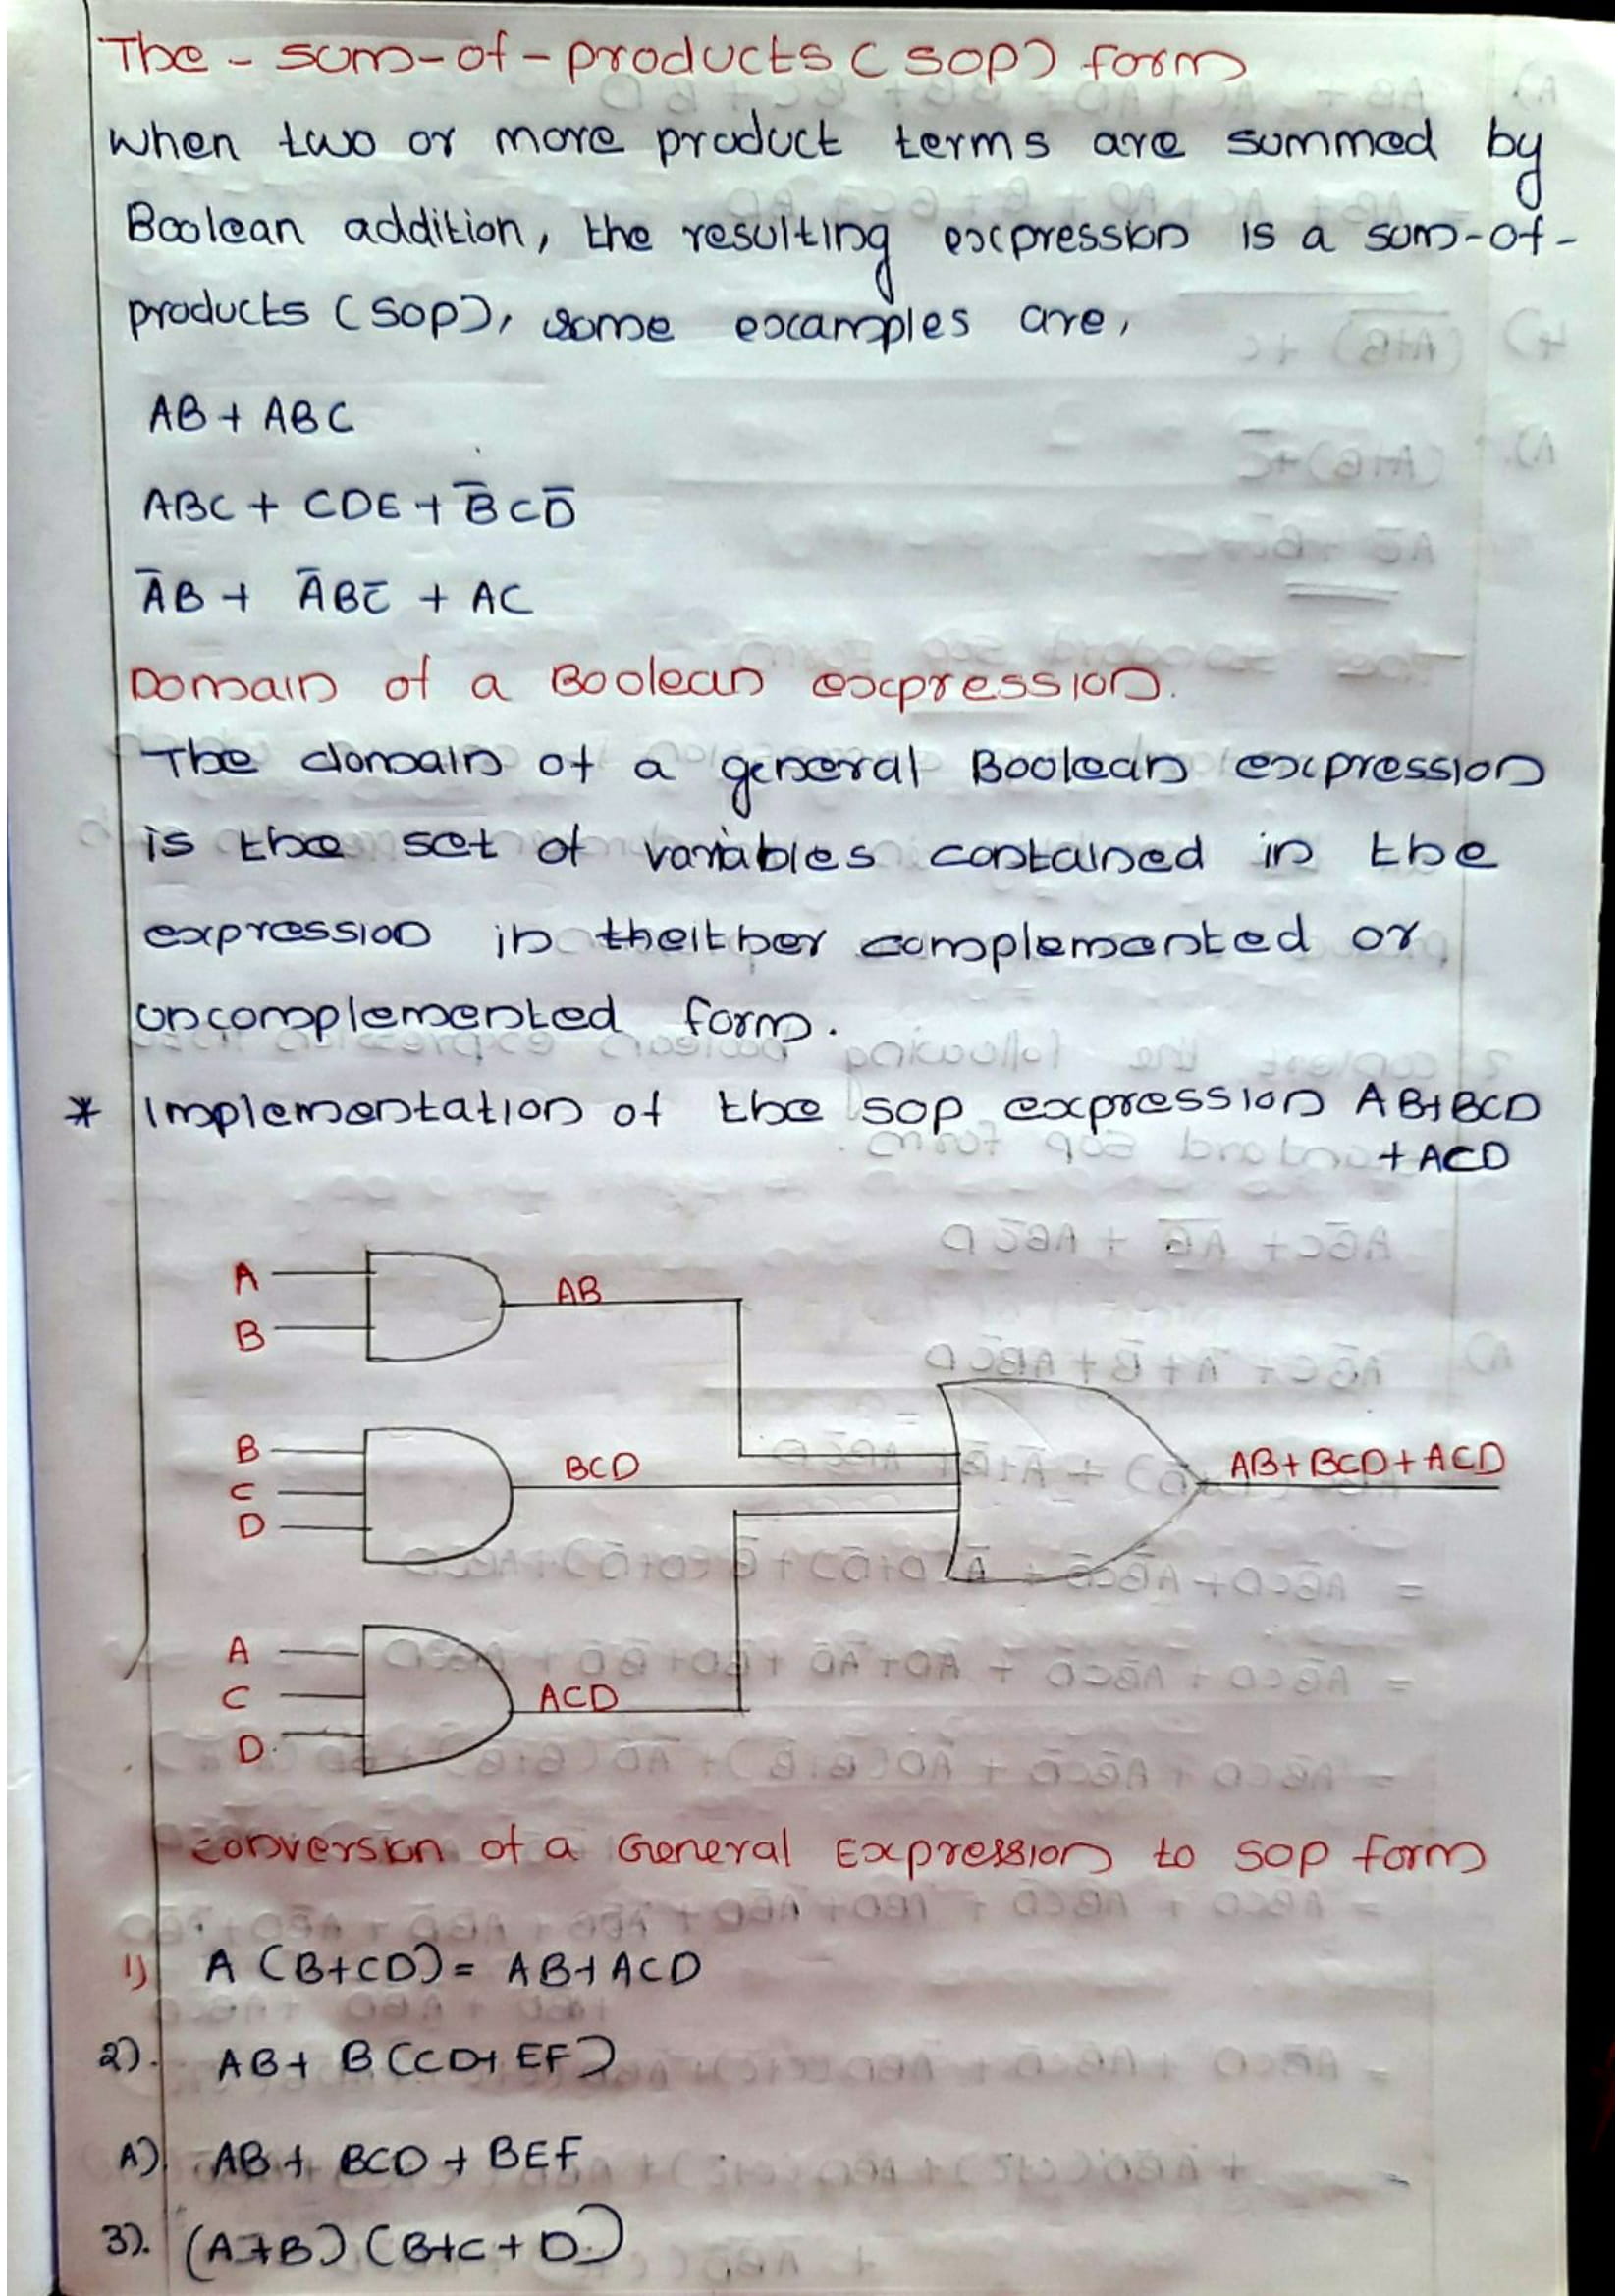 The - sum-of-products (SOP) form
When two or more product terms are summed by
Boolean addition, the resulting expression is a sum-of-
products (SOP), some examples are,
AB + ABC
ABC + CDE + B̅CD̅
A̅B + A̅BC̅ + AC
Domain of a Boolean expression.
The domain of a general Boolean expression
is the set of variables contained in the
expression in theither complemented or
uncomplemented form.
* Implementation of the SOP expression AB+BCD
+ ACD
A
B
AB
B
C
D
BCD
AB+BCD+ACD
A
C
D
ACD
Conversion of a General Expression to SOP form
1) A (B+CD) = AB+ACD
2). AB+ B(CD+EF)
A) AB + BCD + BEF
3). (A+B) (B+C+D)